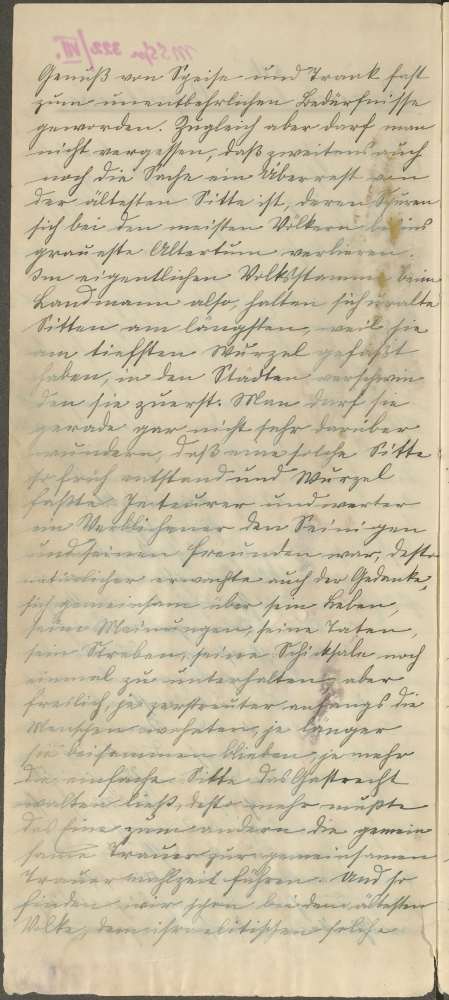 MSSfr 322/VII.
Genuß von Speise und Trank fast
zum unentbehrlichen Bedürfnisse
geworden. Zugleich aber darf man
nicht vergessen, daß zweitens auch
noch die Sache ein Überrest an
der ältesten Sitte ist, deren Spuren
sich bei den meisten Völkern bis ins
graueste Altertum verlieren.
Im eigentlichen Volksstamme, beim
Landmann also, halten sich uralte
Sitten am längsten, weil sie
am tiefsten Wurzel gefaßt
haben, in den Städten verschwin
den sie zuerst. Man darf sie
gerade gar nicht sehr darüber
wundern, daß eine solche Sitte
so früh entstand und Wurzel
faßte. Je teurer und werter
ein Verblichener den Seinigen
und seinen Freunden war, desto
natürlicher erwachte auch der Gedanke,
sich gemeinsam über sein Leben,
seine Meinungen, seine Taten,
sein Streben, seine Schicksale noch
einmal zu unterhalten, aber
freilich, je zerstreuter anfangs die
Menschen wohnten, je länger
sie beisammen blieben, je mehr
die einfache Sitte das Gastrecht
walten ließ, desto mehr mußte
das Eine zum andern die gemein
same Trauer zur gemeinsamen
Trauermahlzeit führen. Und so
finden wir schon bei dem ältesten
Volke, dem israelitischen solche